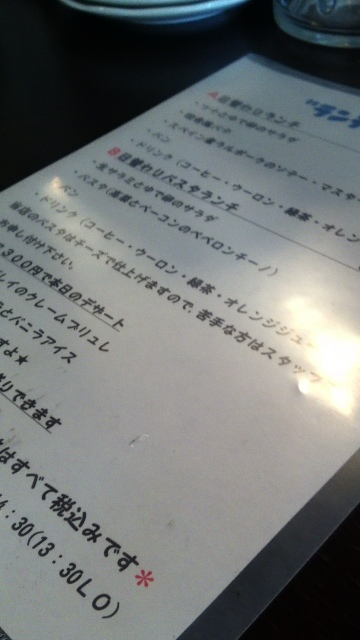 ランチ
A 日替わりランチ
・ツナとゆで卵のサラダ
・パン
・ドリンク（コーヒー・ウーロン・緑茶・オレン
B 日替わりパスタランチ
・生ハムとゆで卵のサラダ
・パスタ（高菜とベーコンのペペロンチーノ）
・パン
・ドリンク（コーヒー・ウーロン・緑茶・オレンジジュー
当店のパスタはチーズで仕上げますので、苦手な方はスタッフ
お申し付け下さい。
３００円で本日のデザート
レイのクレームブリュレ
とバニラアイス
すよ★
りできます
はすべて税込みです＊
：30(13：30ＬＯ)